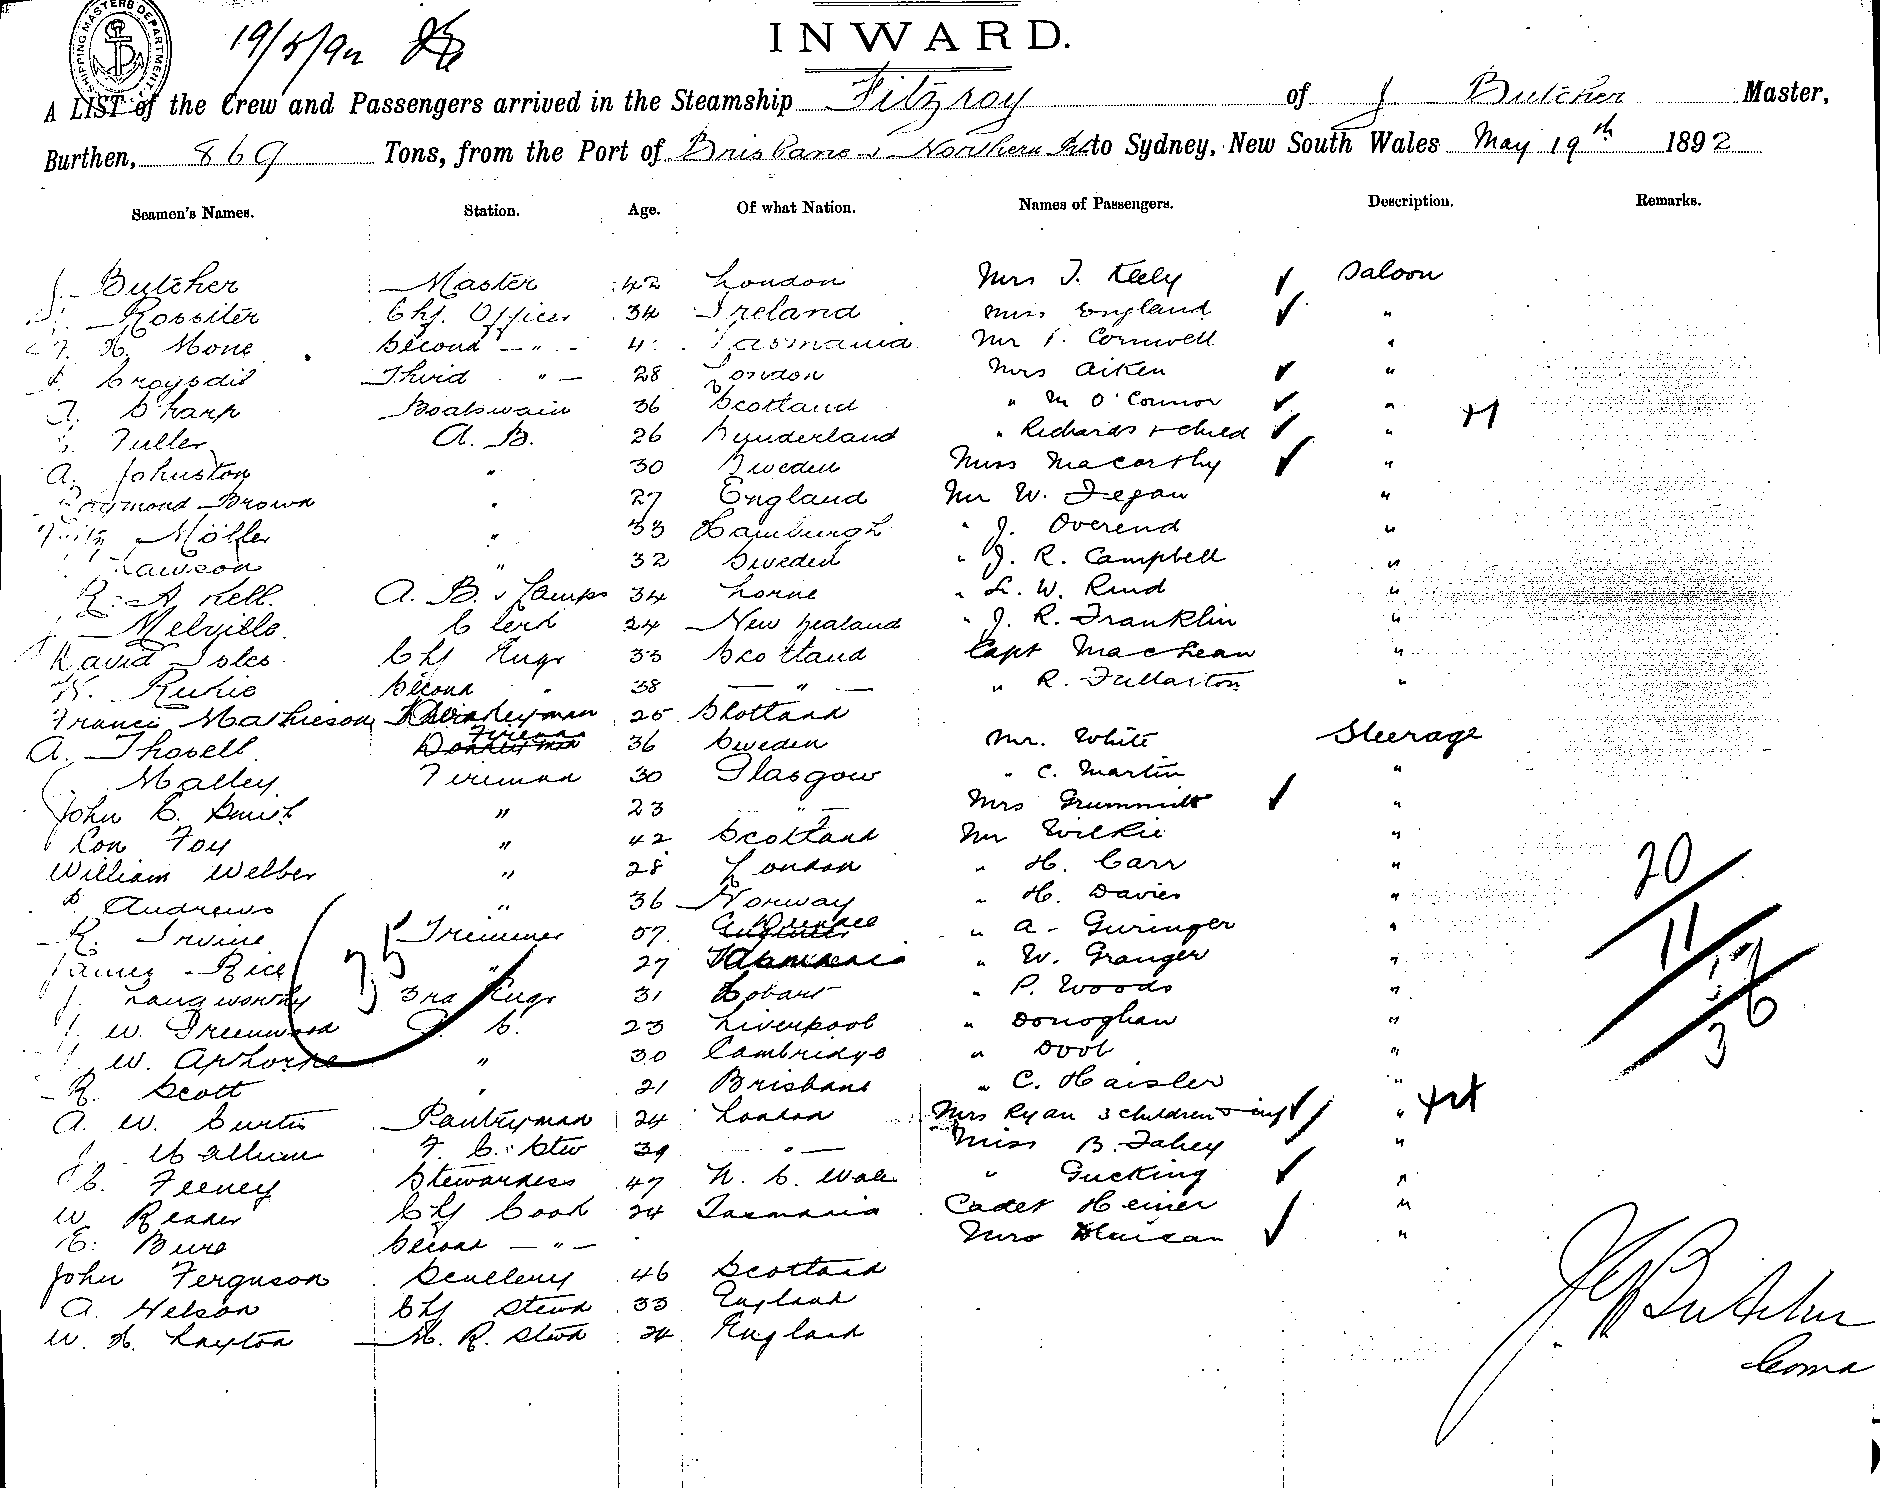 SHIPPING MASTERS DEPARTMENT
19/5/92
INWARD.
A LIST of the Crew and Passengers arrived in the Steamship Fitzroy of J Butcher Master,
Burthen, 869 Tons, from the Port of Brisbane & Northern to Sydney, New South Wales May 19th 1892
Seamen's Names. Station. Age. Of what Nation. Names of Passengers. Description. Remarks.
J. Butcher Master 42 London Mrs T. Keely ✓ Saloon
Rossiter Chf. Officer 34 Ireland Miss England ✓ "
H. Mone Second " 4 Tasmania Mr Cornwell "
Croysdil Third " 28 London Mrs Aiken ✓ "
Sharp Boatswain 36 Scotland " M O'Connor ✓ "
Fuller A. B. 26 Sunderland " Richards & child ✓ "
A. Johnston " 30 Sweden Miss Macarthy ✓ "
Raymond Brown " 27 England Mr W. Fegan "
Fritz Möller " 33 Hamburgh " J. Overend "
Lawson " 32 Sweden " J. R. Campbell "
R. A Kell. A. B. & Lamps 34 Lorne " L. W. Rind "
Melville. Clerk 24 New Zealand " J. R. Franklin "
David Isles Chf Engr 33 Scotland Capt MacLean "
W. Rukie Second " 38 " " R. Fullarton "
Francis Mathieson Donkeyman 25 Scotland
A. Thosell. Fireman 36 Sweden Mr. White Steerage
Malley Fireman 30 Glasgow " C. Martin "
John C. Smith " 23 " Mrs Grummitt ✓ "
Con Foy " 42 Scotland Mr Wilkie "
William Welber " 28 London " H. Carr "
Andrews " 36 Norway " H. Davies "
R. Irvine Trimmer 57 Dundee " A. Guringer "
James Rice " 27 " W. Granger "
J. Langworthy 3rd Engr 31 Hobart " P. Woods "
J. W. Greenwood 23 Liverpool " Donoghau "
J. W. Apthorpe " 30 Cambridge " "
R. Scott " 21 Brisbane " C. Haisler "
A. W. Curtis Pantryman 24 London Mrs Ryan 3 children & inf ✓ "
J. F. C. Stew 39 " Miss B. Fahey "
C. Feeney Stewardess 47 N. S. Wale " Gucking ✓ "
W Reader Chf Cook 24 Tasmania Cadet Heiner "
E. Bure Second " Mrs ✓ "
John Ferguson Scullery 46 Scotland
A. Nelson Chf Stewd 33 England
W. H. Layton M. R. Stewd 24 England
20
11
3
J Butcher